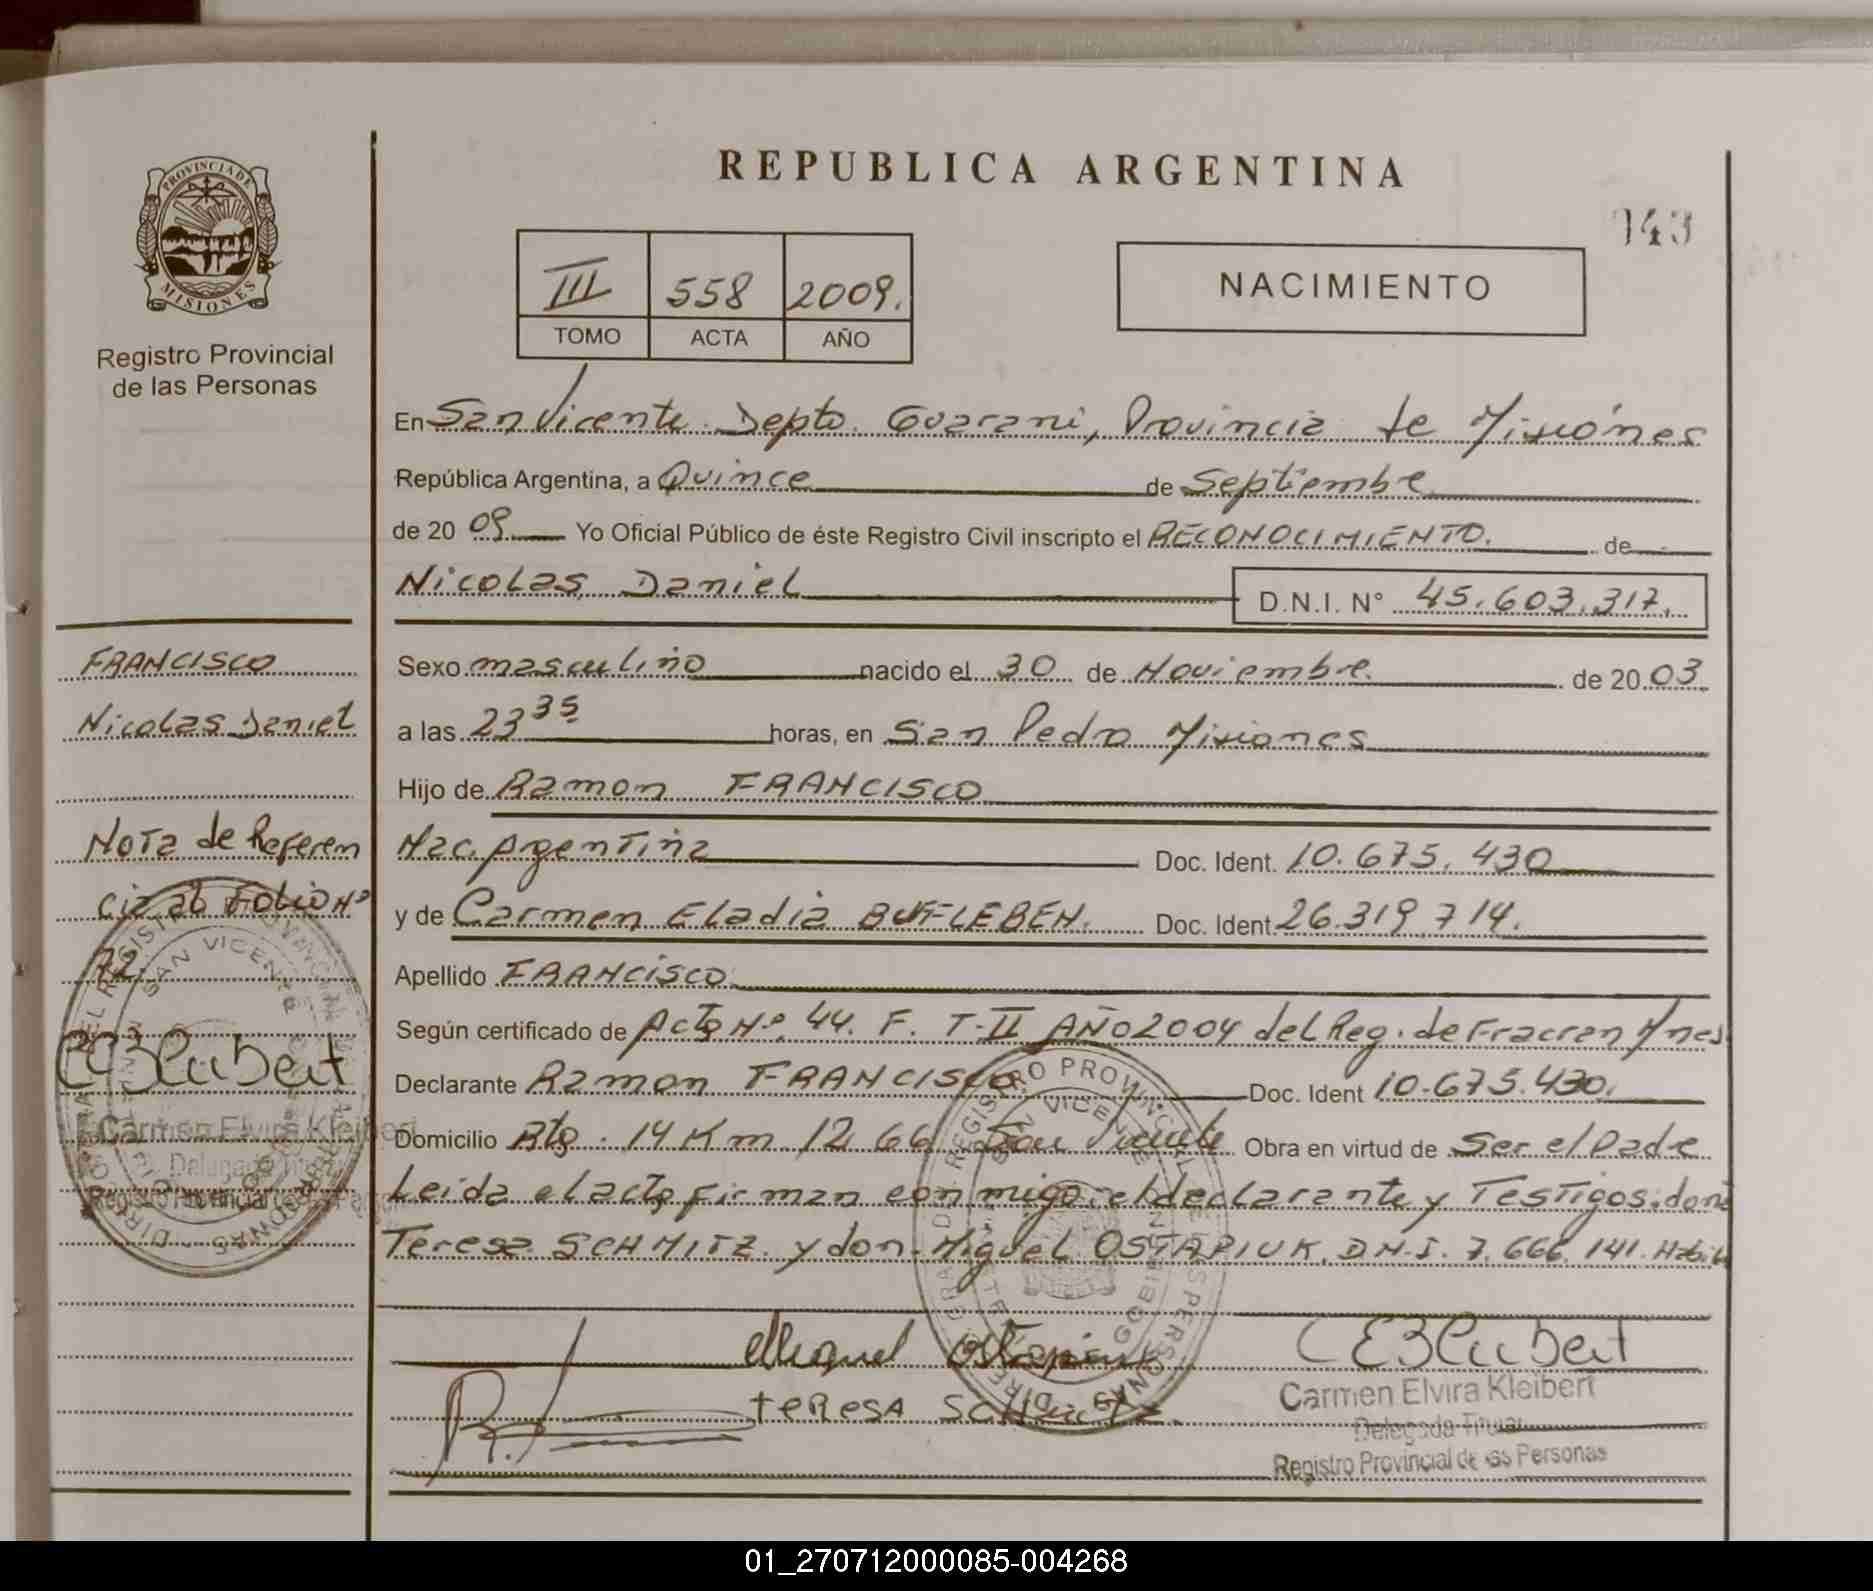 REPUBLICA ARGENTINA
143
PROVINCIA DE
MISIONES
Registro Provincial
de las Personas
III 558 2009.
TOMO ACTA AÑO
NACIMIENTO
En San Vicente Depto. Guarani, Provincia de Misiones
República Argentina, a Quince de Septiembre
de 20 09 Yo Oficial Público de éste Registro Civil inscripto el RECONOCIMIENTO. de
Nicolas Daniel D.N.I. N° 45.603.317.
Sexo masculino nacido el 30 de Noviembre de 20 03
a las 23 35 horas, en San Pedro Misiones
Hijo de Ramon FRANCISCO
Nac. Argentina Doc. Ident. 10.675.430
y de Carmen Eladia BUFFLEBEN. Doc. Ident 26.319.714.
Apellido FRANCISCO
Según certificado de Acta Nº 44. F. T-II AÑO 2004 del Reg. de Fracran Mnes
Declarante Ramon FRANCISCO. Doc. Ident 10.675.430.
Domicilio Rta. 14 Km 1266 San Vicente Obra en virtud de Ser el Padre
Leida el acta firman conmigo el declarante y Testigos. doña
Teresa SCHMITZ y don Miguel OSTAPIUK D.N.I. 7.666.141. Habil
FRANCISCO
Nicolas Daniel
Nota de Referen
cia al Folio Nº
72
CEKleibert
Carmen Elvira Kleibert
Delegada Titular
Registro Provincial de las Personas
Miguel Ostapiuk
TERESA SCHMITZ
CEKleibert
Carmen Elvira Kleibert
Delegada Titular
Registro Provincial de las Personas
01_270712000085-004268